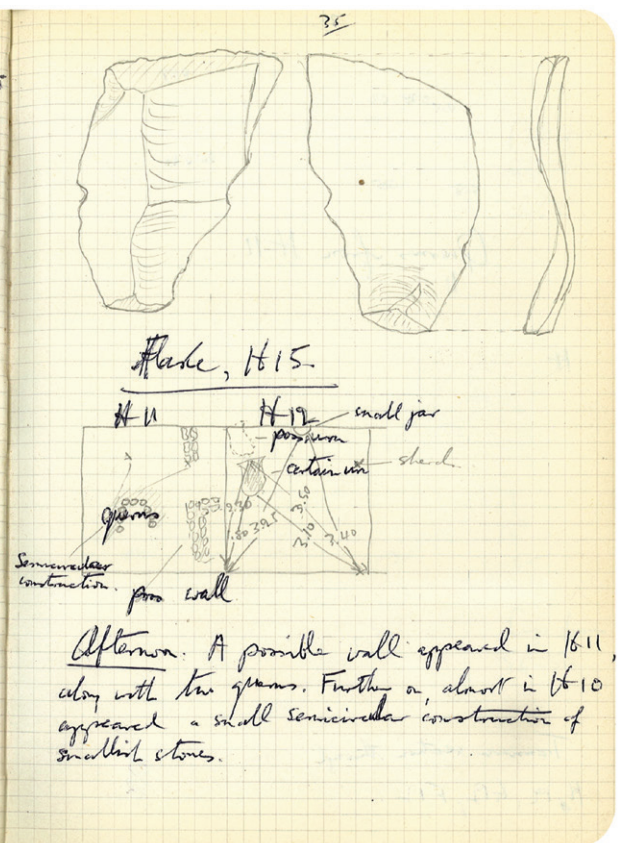 35
Flake, H15.
H-11 H-12 small jar
poss urn
certain urn sherds
querns
9.30
.80 3.95 3.50
3.10 3.40
Semicircular
construction.
poss wall
Afternoon. A possible wall appeared in H11,
along with two querns. Further on, almost in H10
appeared a small semicircular construction of
smallish stones.